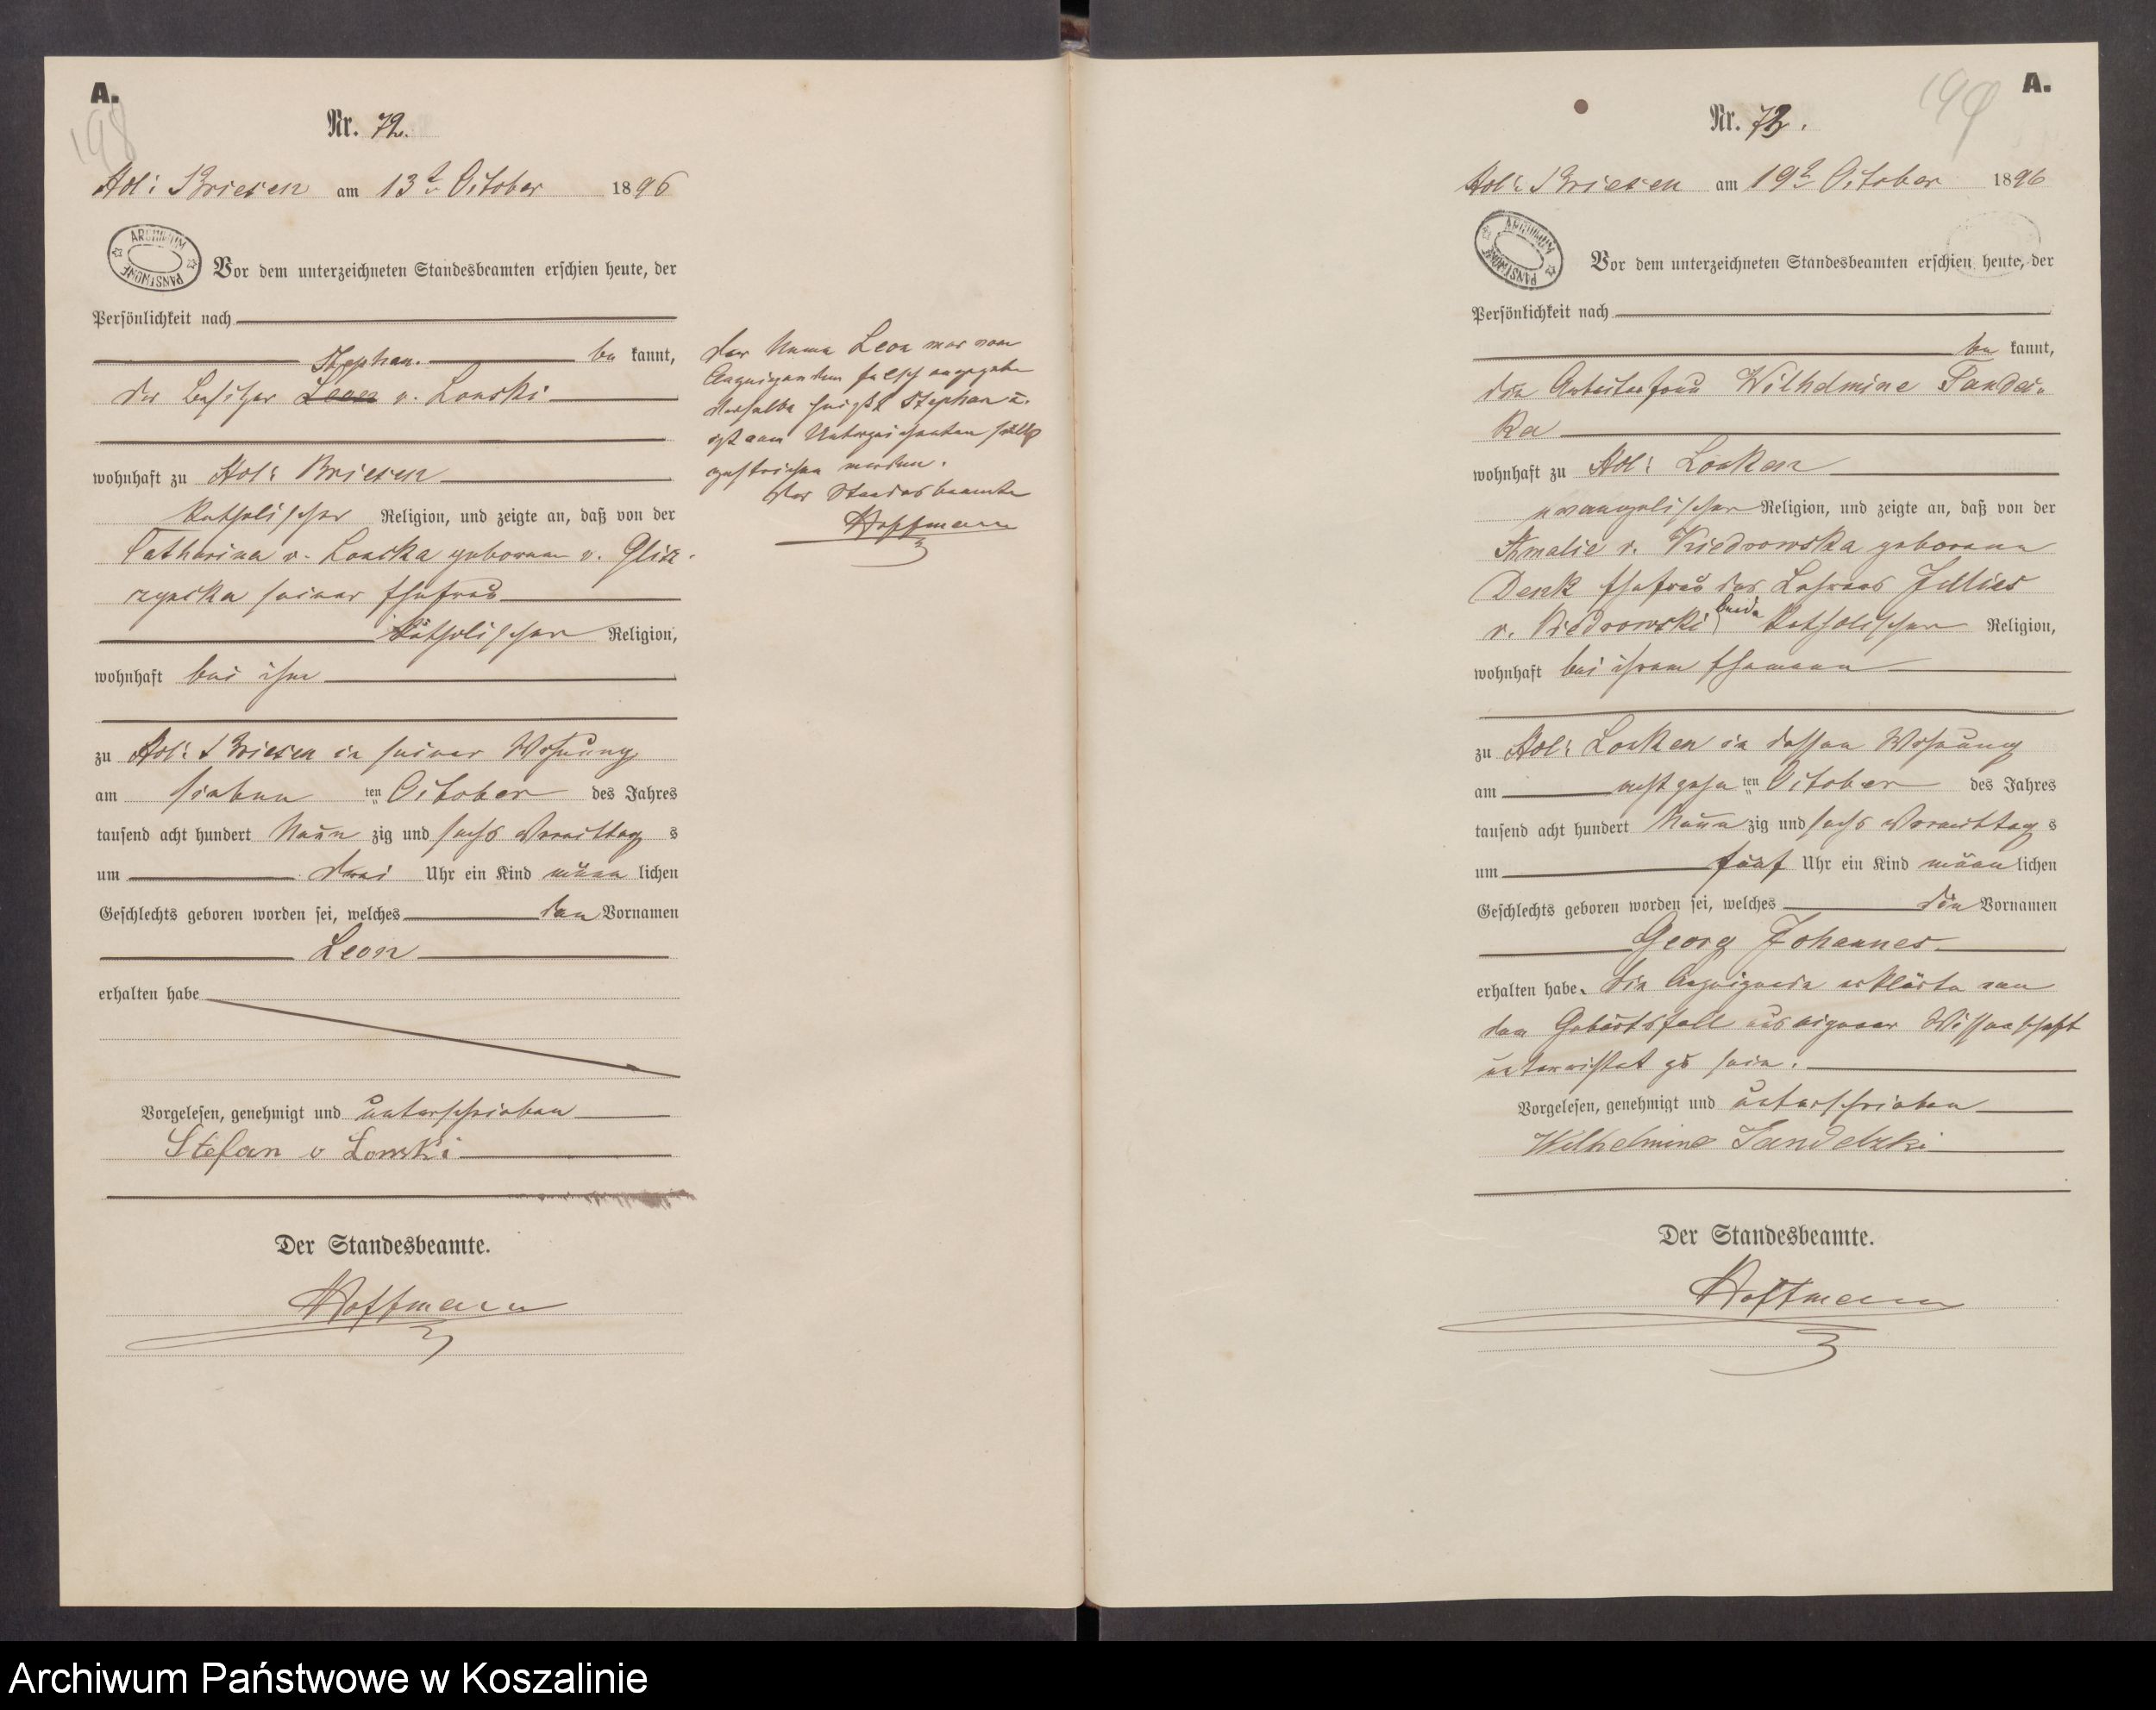 A.
198
Nr. 72.
Adl: Briesen am 13t October 1896
ARCHIWUM PAŃSTWOWE
Vor dem unterzeichneten Standesbeamten erschien heute, der
Persönlichkeit nach
Stephan. be kannt,
der Besitzer Leon v. Lonski
wohnhaft zu Adl: Briesen
katholischer Religion, und zeigte an, daß von der
Catharina v. Lonska geborene v. Glisz-
czynska seiner Ehefrau
katholischer Religion,
wohnhaft bei ihm
zu Adl: Briesen in seiner Wohnung
am sieben ten October des Jahres
tausend acht hundert Neun zig und sechs Vormittag s
um drei Uhr ein Kind männ lichen
Geschlechts geboren worden sei, welches den Vornamen
Leon
erhalten habe
Vorgelesen, genehmigt und unterschrieben
Stefan v Lonski
Der Standesbeamte.
Hoffmann
Der Name Leon war vom
Anzeigenden falsch angegeben
derselbe heißt Stephan u.
ist vom Unterzeichneten
gestrichen worden.
Der Standesbeamte
Hoffmann
A.
199
Nr. 73.
Adl: Briesen am 19t October 1896
ARCHIWUM PAŃSTWOWE
Vor dem unterzeichneten Standesbeamten erschien heute, der
Persönlichkeit nach
be kannt,
die Arbeiterfrau Wilhelmine
wohnhaft zu Adl: Lonken
evangelischer Religion, und zeigte an, daß von der
Amalie v. Kiedrowska geborene
Denk Ehefrau des Lehrers Julius
v. Kiedrowski beide katholischer Religion,
wohnhaft bei ihrem Ehemann
zu Adl: Lonken in dessen Wohnung
am achtzehn ten October des Jahres
tausend acht hundert Neun zig und sechs Vormittag s
um fünf Uhr ein Kind männ lichen
Geschlechts geboren worden sei, welches die Vornamen
Georg Johannes
erhalten habe. Die Anzeigende erklärte von
dem Geburtsfall aus eigener Wissenschaft
unterrichtet zu sein.
Vorgelesen, genehmigt und unterschrieben
Wilhelmine
Der Standesbeamte.
Hoffmann
Archiwum Państwowe w Koszalinie